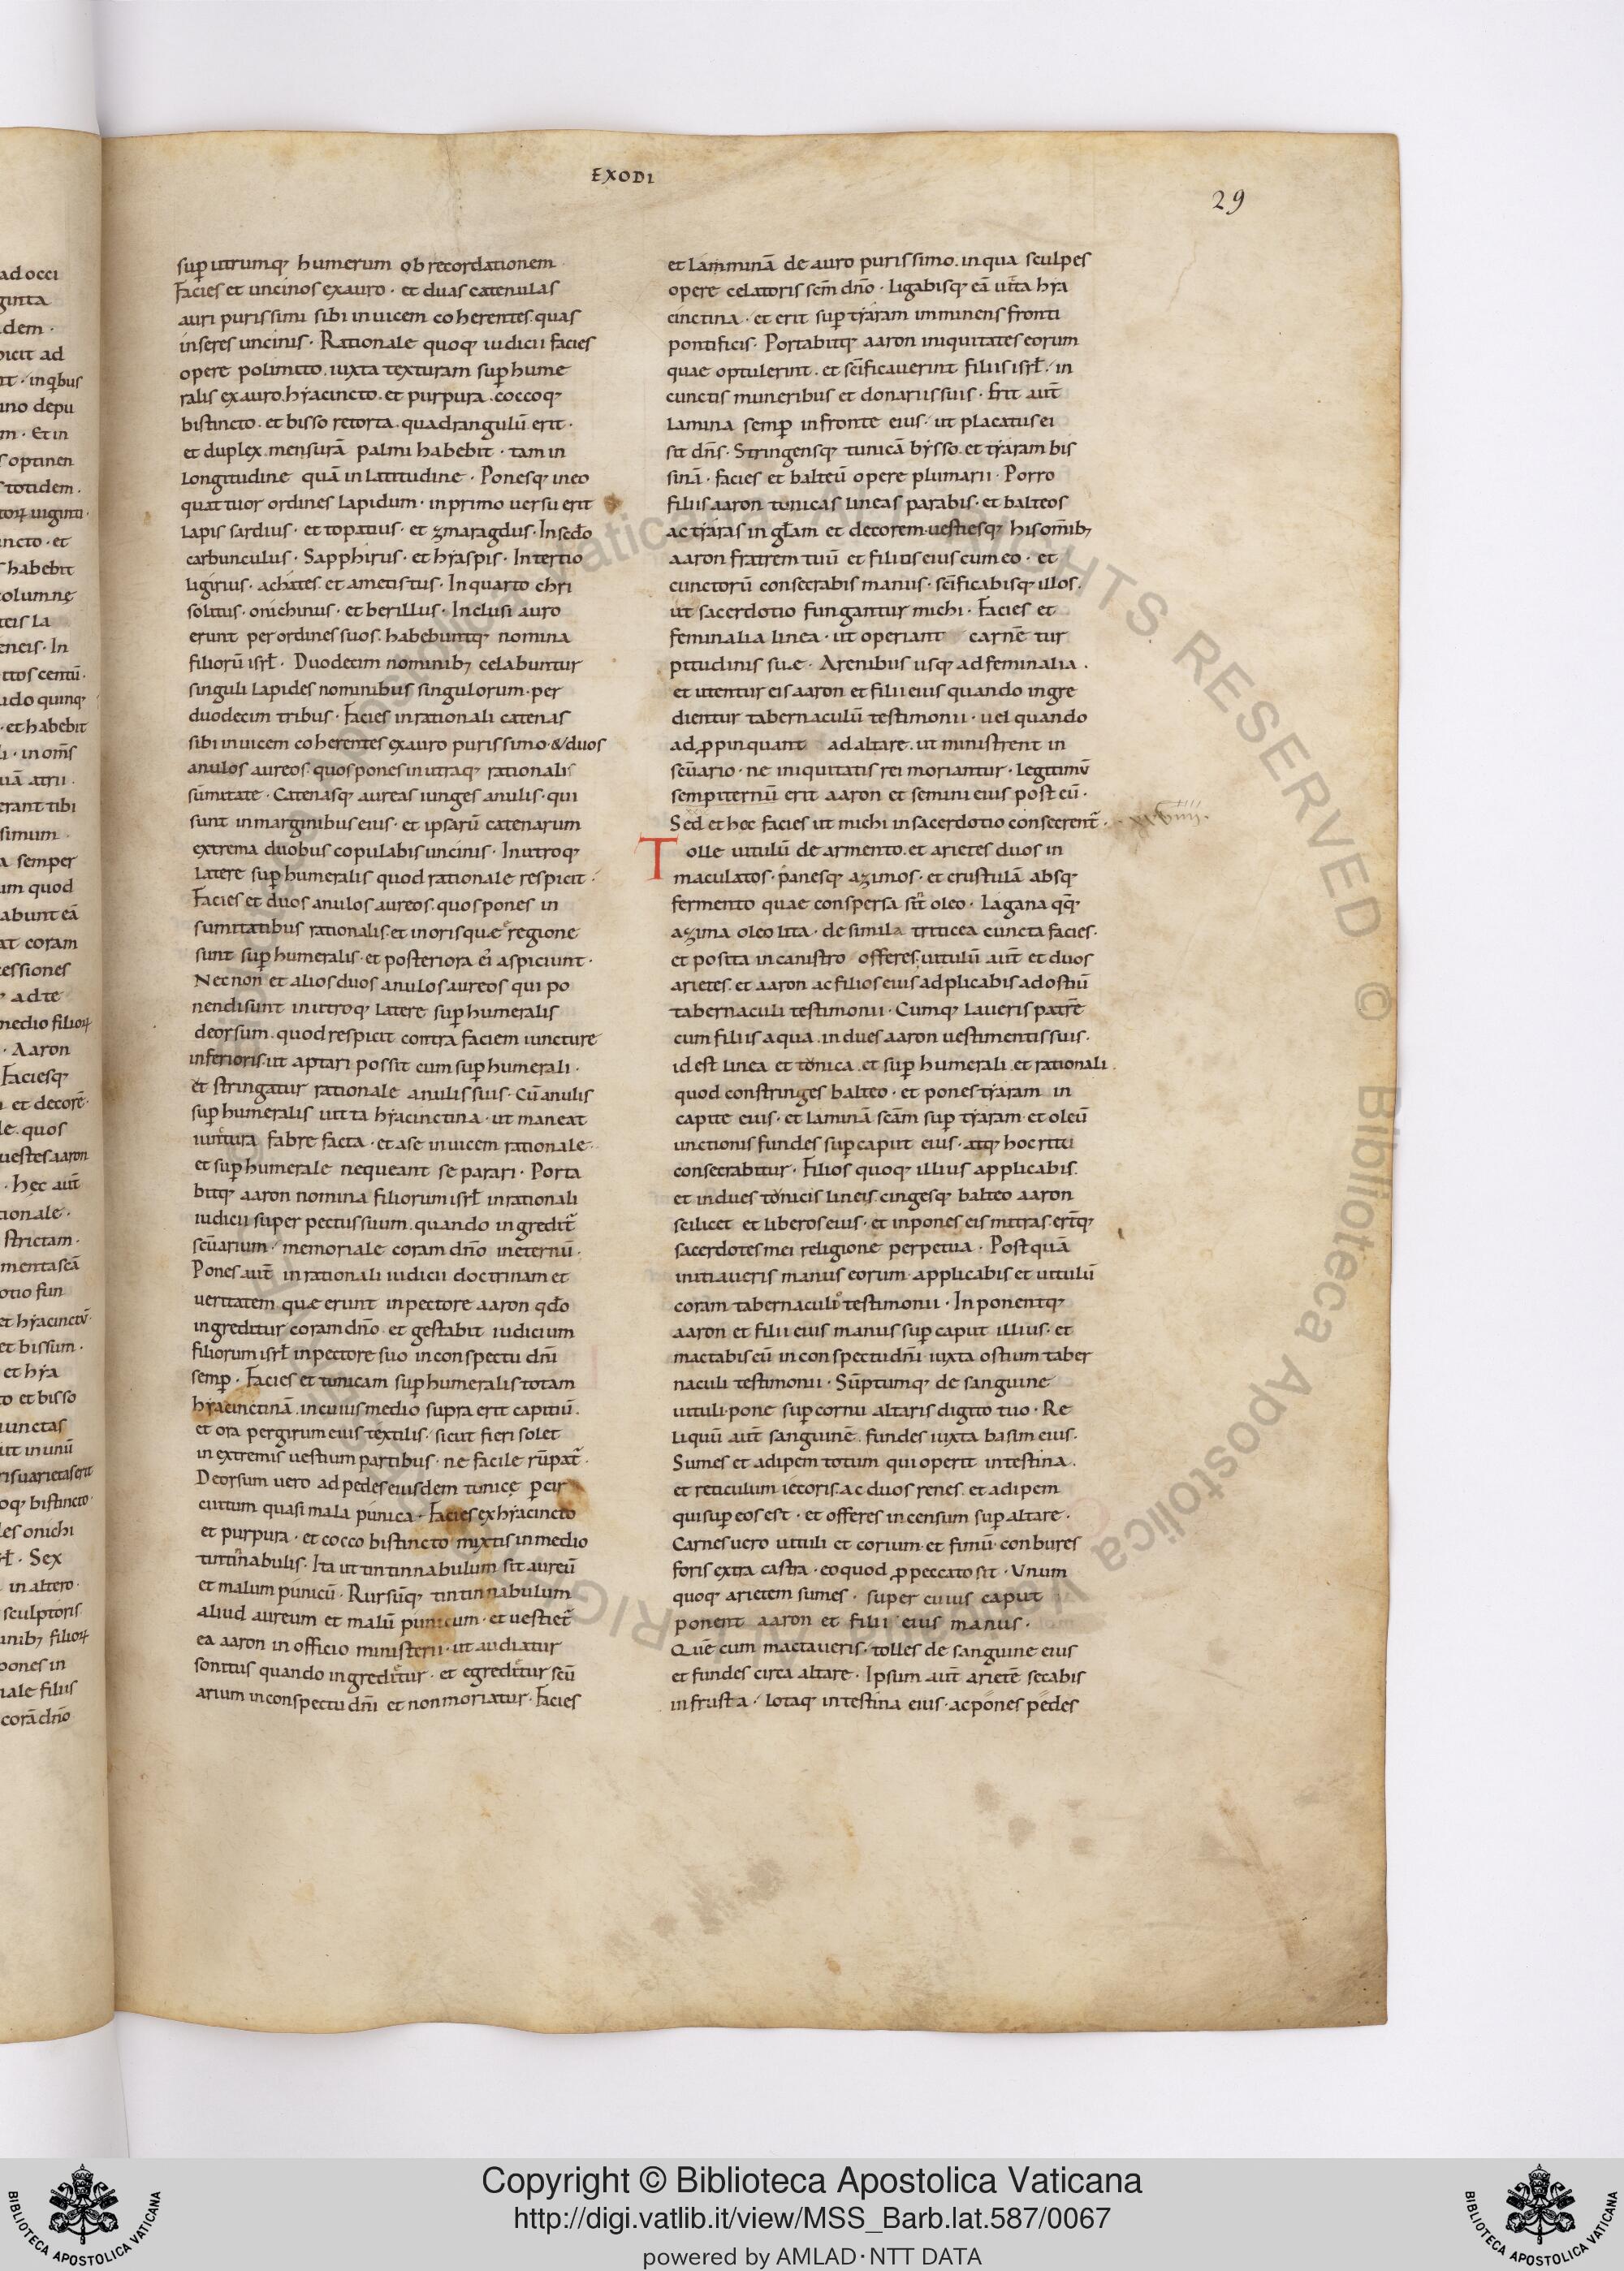 EXODI
29
sup̄ utrumq; humerum ob recordationem
Facies et uncinos ex auro · et duas catenulas
auri purissimi sibi inuicem coherentes. quas
inseres uncinis · Rationale quoq; iudicii facies
opere polimito. iuxta texturam sup̄hume
ralis ex auro. hyacincto. et purpura. coccoq;
bistincto. et bisso retorta. quadrangulū erit ·
et duplex. mensurā palmi habebit · tam in
longitudine quā in latitudine · Ponesq; in eo
quattuor ordines lapidum · in primo uersu erit
lapis sardius · et topatius · et zmaragdus · In secd̄o
carbunculus · Sapphirus · et hyaspis · In tertio
ligirius · achates. et ametistus · In quarto chri
solitus · onichinus · et berillus · Inclusi auro
erunt per ordines suos. habebuntq; nomina
filiorū isrł · Duodecim nominib; celabuntur
singuli lapides nominibus singulorum · per
duodecim tribus · Facies in rationali catenas
sibi inuicem coherentes ex auro purissimo · & duos
anulos aureos. quos pones in utraq; rationalis
sūmitate · Catenasq; aureas iunges anulis · qui
sunt in marginibus eius · et ipsarū catenarum
extrema duobus copulabis uncinis · In utroq;
latere sup̄humeralis quod rationale respicit ·
Facies et duos anulos aureos. quos pones in
sumitatibus rationalis. et in oris que e regione
sunt sup̄humeralis · et posteriora ei aspiciunt ·
Nec non et alios duos anulos aureos qui po
nendi sunt in utroq; latere sup̄humeralis
deorsum. quod respicit contra faciem iuncture
inferioris. ut aptari possit cum sup̄humerali ·
et stringatur rationale anulis suis · Cū anulis
sup̄humeralis uitta hyacinctina · ut maneat
iuntura fabre facta · et a se inuicem rationale ·
et sup̄humerale nequeant separari · Porta
bitq; aaron nomina filiorum isrł in rationali
iudicii super pectus suum. quando ingredit̄
sc̄uarium · memoriale coram dn̄o in eternū ·
Pones aut̄ in rationali iudicii doctrinam et
ueritatem que erunt in pectore aaron qd̄o
ingreditur coram dn̄o · et gestabit iudicium
filiorum isrł in pectore suo in conspectu dn̄i
semp̄ · Facies et tunicam sup̄humeralis totam
hyacinctinā. in cuius medio supra erit capitiū.
et ora per girum eius textilis · sicut fieri solet
in extremis uestium partibus · ne facile rūpat̄ ·
Deorsum uero ad pedes eiusdem tunicę p̄ cir
cuitum quasi mala punica · Facies ex hyacincto
et purpura · et cocco bistincto mixtis in medio
tintinabulis · Ita ut tintinnabulum sit aureū
et malum punicū · Rursūq; tintinnabulum
aliud aureum et malū punicum · et uestiet̄
ea aaron in officio ministerii · ut audiatur
sonitus quando ingreditur · et egreditur sc̄ū
arium in conspectu dn̄i et non moriatur · Facies
et lamminā de auro purissimo. in qua sculpes
opere celatoris sc̄m dn̄o · ligabisq; eā uitta hya
cinctina · et erit sup̄ tyaram imminens fronti
pontificis · Portabitq; aaron iniquitates eorum
quae optulerint. et sc̄ificauerint filiis isrł · in
cunctis muneribus et donariis suis · Erit aut̄
lamina semp̄ in fronte eius · ut placatus ei
sit dn̄s · Stringensq; tunicā bysso. et tyaram bis
sinā · facies et balteū opere plumarii · Porro
filiis aaron tunicas lineas parabis · et balteos
ac tyaras in gl̄am et decorem · uestiesq; his om̄ib;
aaron fratrem tuū et filios eius cum eo · et
cunctorū consecrabis manus · sc̄ificabisq; illos.
ut sacerdotio fungantur michi · Facies et
feminalia linea · ut operiant carnē tur
pitudinis sue · A renibus usq; ad feminalia .
et utentur eis aaron et filii eius quando ingre
dientur tabernaculū testimonii · uel quando
adp̄pinquant ad altare. ut ministrent in
sc̄uario · ne iniquitatis rei moriantur · legitimū
sempiternū erit aaron et semini eius post eū ·
Sed et hec facies ut michi in sacerdotio consecrent̄ ·
Tolle uitulū de armento. et arietes duos in
maculatos · panesq; azimos · et crustulā absq;
fermento quae conspersa sit oleo · Lagana qq;
azima oleo lita · de simila triticea cuncta facies ·
et posita in canistro offeres. uitulū aut̄ et duos
arietes. et aaron ac filios eius adplicabis ad ostiū
tabernaculi testimonii · Cumq; laueris patrē
cum filiis aqua. indues aaron uestimentis suis ·
id est linea et tonica. et sup̄humerali. et rationali.
quod constringes balteo · et pones tyaram in
capite eius · et laminā sc̄am sup̄ tyaram · et oleū
unctionis fundes sup̄ caput eius · atq; hoc ritu
consecrabitur · Filios quoq; illius applicabis.
et indues tonicis lineis. cingesq; balteo aaron
scilicet et liberos eius · et inpones eis mitras. ert̄q;
sacerdotes mei religione perpetua · Postquā
initiaueris manus eorum. applicabis et uitulū
coram tabernaculi testimonii · Inponentq;
aaron et filii eius manus sup̄ caput illius · et
mactabis eū in conspectu dn̄i iuxta ostium taber
naculi testimonii · Sūptumq; de sanguine
uituli. pone sup̄ cornu altaris digito tuo · Re
liquū aut̄ sanguinē. fundes iuxta basim eius ·
Sumes et adipem totum qui operit intestina.
et reticulum iecoris. ac duos renes. et adipem
qui sup̄ eos est · et offeres incensum sup̄ altare ·
Carnes uero uituli et corium · et fimū · conbures
foris extra castra · eo quod p̄ peccato sit · Unum
quoq; arietem sumes · super cuius caput
ponent aaron et filii eius manus ·
Quē cum mactaueris · tolles de sanguine eius
et fundes circa altare · Ipsum aut̄ arietē secabis
in frusta · lotaq; intestina eius · ac pones pedes
Copyright © Biblioteca Apostolica Vaticana
http://digi.vatlib.it/view/MSS_Barb.lat.587/0067
powered by AMLAD·NTT DATA
BIBLIOTECA APOSTOLICA VATICANA
BIBLIOTECA APOSTOLICA VATICANA